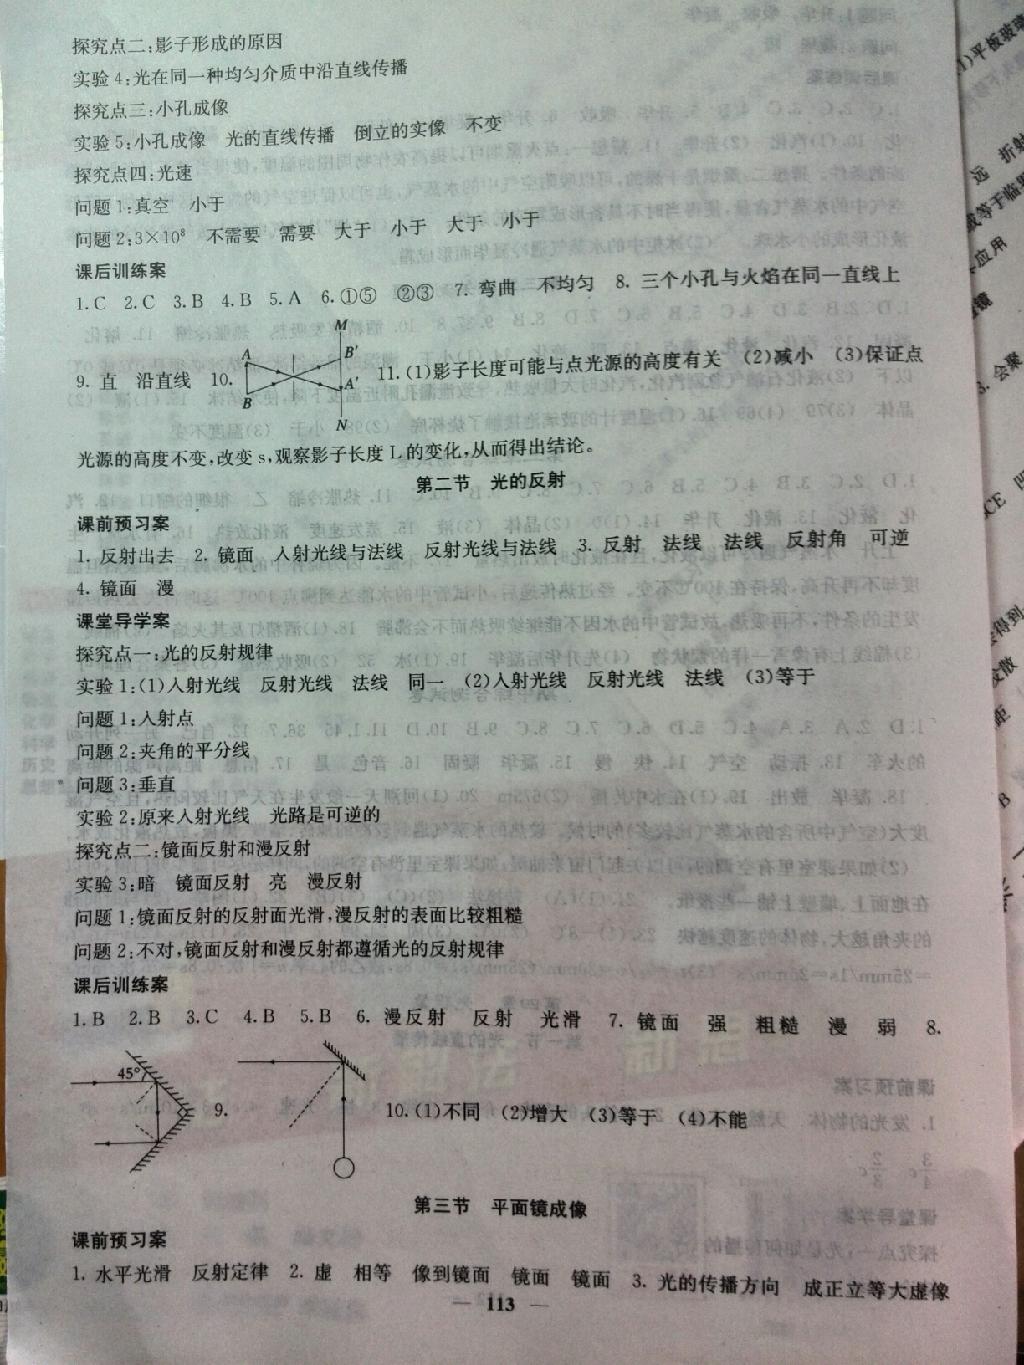 探究点二:影子形成的原因
实验4:光在同一种均匀介质中沿直线传播
探究点三:小孔成像
实验5:小孔成像 光的直线传播 倒立的实像 不变
探究点四:光速
问题1:真空 小于
问题2:3×10⁸ 不需要 需要 大于 小于 大于 小于
课后训练案
1.C 2.C 3.B 4.B 5.A 6.①⑤ ②③ 7. 弯曲 不均匀 8. 三个小孔与火焰在同一直线上
M
A B′
9. 直 沿直线 10. A′ 11.(1)影子长度可能与点光源的高度有关 (2)减小 (3)保证点
B
N
光源的高度不变,改变s,观察影子长度L的变化,从而得出结论。
第二节 光的反射
课前预习案
1. 反射出去 2. 镜面 入射光线与法线 反射光线与法线 3. 反射 法线 法线 反射角 可逆
4. 镜面 漫
课堂导学案
探究点一:光的反射规律
实验1:(1)入射光线 反射光线 法线 同一 (2)入射光线 反射光线 法线 (3)等于
问题1:入射点
问题2:夹角的平分线
问题3:垂直
实验2:原来入射光线 光路是可逆的
探究点二:镜面反射和漫反射
实验3:暗 镜面反射 亮 漫反射
问题1:镜面反射的反射面光滑,漫反射的表面比较粗糙
问题2:不对,镜面反射和漫反射都遵循光的反射规律
课后训练案
1.B 2.B 3.C 4.B 5.B 6. 漫反射 反射 光滑 7. 镜面 强 粗糙 漫 弱 8.
45°
9. 10.(1)不同 (2)增大 (3)等于 (4)不能
第三节 平面镜成像
课前预习案
1. 水平光滑 反射定律 2. 虚 相等 像到镜面 镜面 镜面 3. 光的传播方向 成正立等大虚像
— 113 —
1)平板玻璃
远 折射
或等于临界
应用
镜
3. 会聚
CE 凹
得到
发散
距
B